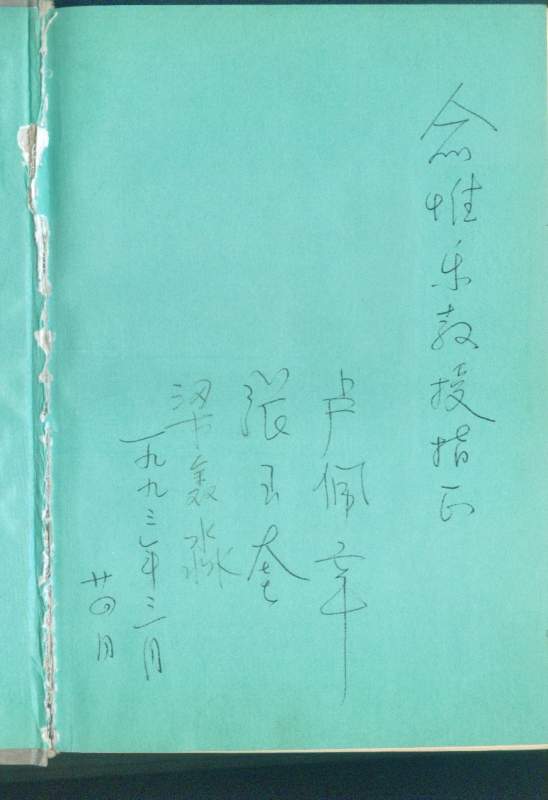 俞惟乐教授指正
卢佩章
张玉奎
梁鑫淼
一九九三年三月
廿四日